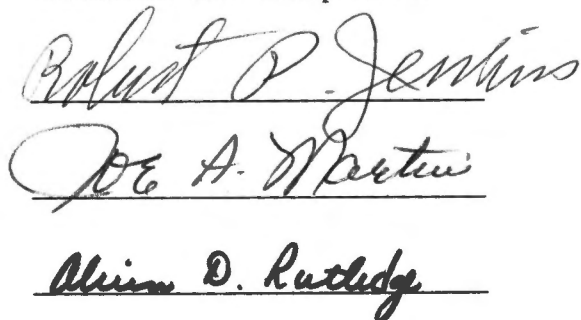 Robert P. Jenkins
Joe A. Martin
D. Rutledge